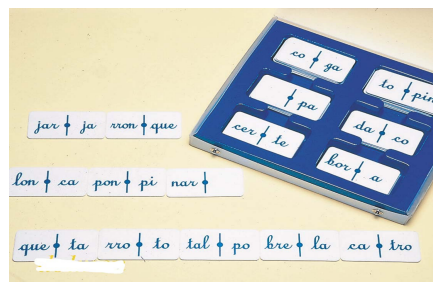 co ga
to pin
pa
da co
cer te
bor a
jar ja rron que
lon ca pon pi nar
que ta rro to tal po bre la ca tro